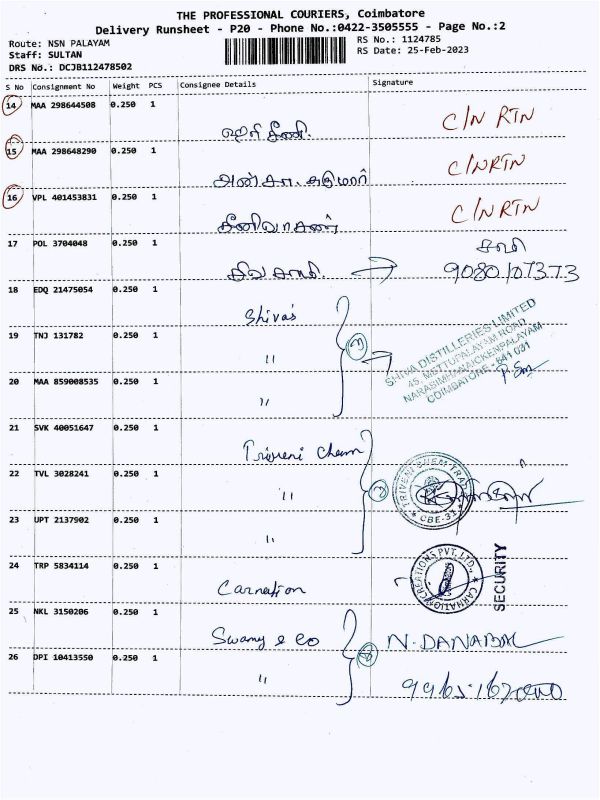 THE PROFESSIONAL COURIERS, Coimbatore
Delivery Runsheet - P20 - Phone No.:0422-3505555 - Page No.:2
Route: NSN PALAYAM
RS No.: 1124785
Staff: SULTAN
RS Date: 25-Feb-2023
DRS No.: DCJB112478502
S No Consignment No Weight PCS Consignee Details Signature
14 MAA 298644508 0.250 1
C/N RTN
15 MAA 298648290 0.250 1
C/N RTN
16 VPL 401453831 0.250 1
சீனிவாசன் C/N RTN
17 POL 3704048 0.250 1
சிவசாமி. → சாமி
9080107373
18 EDQ 21475054 0.250 1
Shivas
19 TNJ 131782 0.250 1
" 3 →
SHIVA DISTILLERIES LIMITED
45, METTUPALAYAM ROAD
NARASIMHANAICKENPALAYAM
COIMBATORE - 641 031
20 MAA 859008535 0.250 1
"
21 SVK 40051647 0.250 1
Triveni Chem
22 TVL 3028241 0.250 1
" 3
TRIVENI CHEM TRAD
* CBE-31 *
23 UPT 2137902 0.250 1
"
24 TRP 5834114 0.250 1
Carnation
CARNATION CREATIONS PVT. LTD.,
SECURITY
25 NKL 3150206 0.250 1
Swamy & Co N. DANABAL
26 DPI 10413550 0.250 1
"